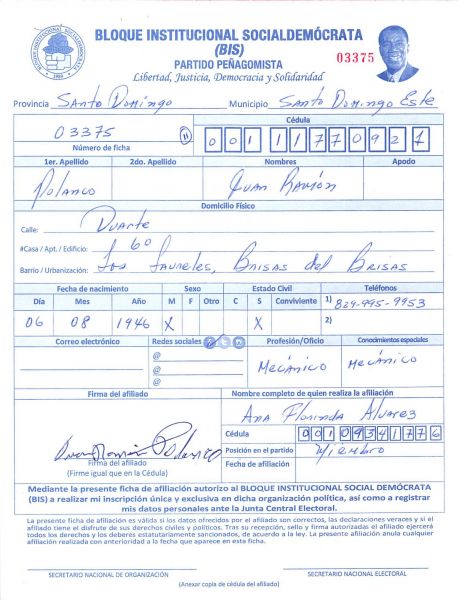 BLOQUE INSTITUCIONAL SOCIALDEMÓCRATA
(BIS)
PARTIDO PEÑAGOMISTA
Libertad, Justicia, Democracia y Solidaridad
03375
BLOQUE INSTITUCIONAL SOCIALDEMÓCRATA
Provincia Santo Domingo Municipio Santo Domingo Este
03375
Número de ficha
Cédula
1er. Apellido 2do. Apellido Nombres Apodo
Polanco Juan Ramón
Domicilio Físico
Calle: Duarte
#Casa / Apt. / Edificio: 60
Barrio / Urbanización: Los Laureles, Brisas del
Fecha de nacimiento Sexo Estado Civil Teléfonos
Día Mes Año M F Otro C S Conviviente 1) 829-995-9953
06 08 1946 X X 2)
Correo electrónico Redes sociales Profesión/Oficio Conocimientos especiales
@
@
@
Mecánico Mecánico
Firma del afiliado Nombre completo de quien realiza la afiliación
Ana Florinda Alvarez
Cédula 00109341776
Posición en el partido Miembro
Fecha de afiliación
Juan Ramón Polanco
Firma del afiliado
(Firme igual que en la Cédula)
Mediante la presente ficha de afiliación autorizo al BLOQUE INSTITUCIONAL SOCIAL DEMÓCRATA
(BIS) a realizar mi inscripción única y exclusiva en dicha organización política, así como a registrar
mis datos personales ante la Junta Central Electoral.
La presente ficha de afiliación es válida si los datos ofrecidos por el afiliado son correctos, las declaraciones veraces y si el
afiliado tiene el disfrute de sus derechos civiles y políticos. Tras su recepción, sello y firma autorizadas el afiliado ejercerá
todos los derechos y los deberes estatutariamente sancionados, de acuerdo a la ley. La presente afiliación anula cualquier
afiliación realizada con anterioridad a la fecha que aparece en esta ficha.
SECRETARIO NACIONAL DE ORGANIZACIÓN SECRETARIO NACIONAL ELECTORAL
(Anexar copia de cédula del afiliado)